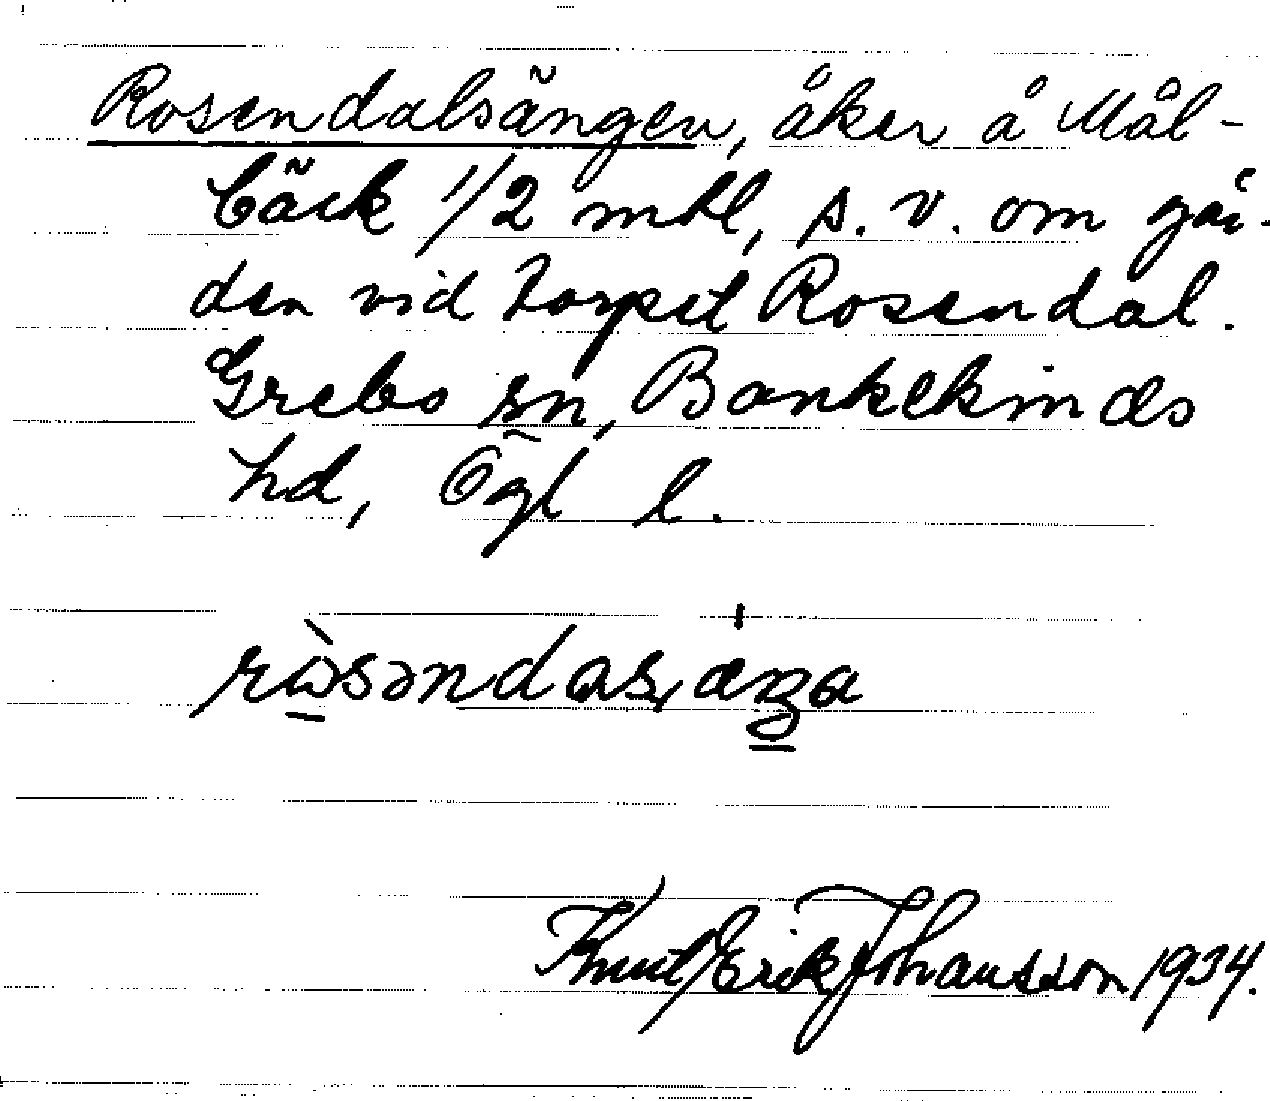 Rosendalsängen, åker å Mål-
bäck 1/2 mtl, s.v. om går-
den vid torpet Rosendal.
Grebo sn, Bankekinds
hd, Ögl l.
Knut Erik Johansson 1934.